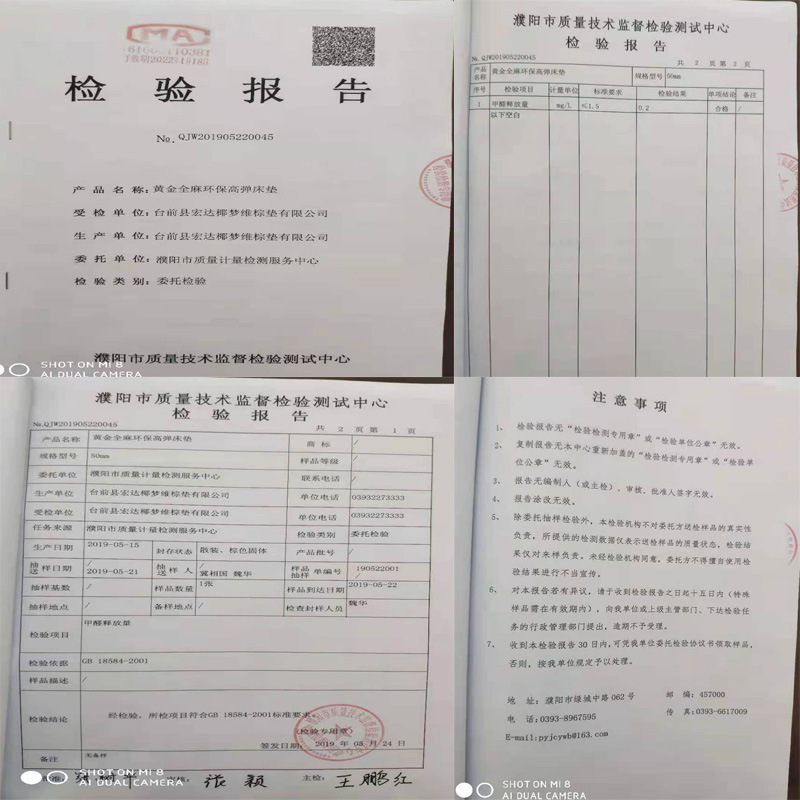 MA
检 验 报 告
No. QJW201905220045
产 品 名 称：黄金全麻环保高弹床垫
受 检 单 位：台前县宏达椰梦维棕垫有限公司
生 产 单 位：台前县宏达椰梦维棕垫有限公司
委 托 单 位：濮阳市质量计量检测服务中心
检 验 类 别：委托检验
濮阳市质量技术监督检验测试中心
SHOT ON MI 8
AI DUAL CAMERA
濮阳市质量技术监督检验测试中心
检 验 报 告
№.QJW201905220045
共 2 页 第 2 页
产品名称 黄金全麻环保高弹床垫 规格型号 50mm
序号 检验项目 计量单位 标准要求 检验结果 单项结论 备注
1 甲醛释放量 mg/L ≤1.5 0.2 合格 /
以下空白
濮阳市质量技术监督检验测试中心
检 验 报 告
№.QJW201905220045
共 2 页 第 1 页
产品名称 黄金全麻环保高弹床垫 商 标 /
规格型号 50mm 样品等级 /
委托单位 濮阳市质量计量检测服务中心 联系电话 /
生产单位 台前县宏达椰梦维棕垫有限公司 单位电话 03932273333
受检单位 台前县宏达椰梦维棕垫有限公司 单位电话 03932273333
任务来源 濮阳市质量计量检测服务中心 检验类别 委托检验
生产日期 2019-05-15 封存状态 散装、棕色固体 产品批号 /
抽样日期 / 抽样人 / 样品单编号 190522001
送 2019-05-21 送 冀相国 魏华 抽样 /
抽样基数 / 样品数量 1张 样品到达日期 2019-05-22
抽样地点 / 备样地点 / 检查封样人员 魏华
检验项目 甲醛释放量
检验依据 GB 18584-2001
样品描述 /
检验结论 经检验，所检项目符合GB 18584-2001标准要求。
(检验专用章)
签发日期： 2019 年 05 月 24 日
备注 无备样
审核： 张颖 主检： 王鹏红
SHOT ON MI 8
AI DUAL CAMERA
注 意 事 项
1、 检验报告无“检验检测专用章”或“检验单位公章”无效。
2、 复制报告无本中心重新加盖的“检验检测专用章”或“检验单
位公章”无效。
3、 报告无编制人（或主检）、审核、批准人签字无效。
4、 报告涂改无效。
5、 除委托抽样检验外，本检验机构不对委托方送检样品的真实性
负责，所提供的检测数据仅表示送检样品的质量状态，检验结
果仅对来样负责，未经检验机构同意，委托方不得擅自使用检
验结果进行不当宣传。
6、 对本报告若有异议，请于收到检验报告之日起十五日内（特殊
样品需在有效期内），向我单位或上级主管部门、下达检验任
务的行政管理部门提出，逾期不予受理。
7、 收到本检验报告 30 日内，可凭我单位委托检验协议书领取样品，
否则，按我单位规定予以处理。
地 址：濮阳市绿城中路 062 号 邮 编：457000
电 话：0393-8967595 传 真：0393-6617009
E-mail:pyjcywb@163.com
SHOT ON MI 8
AI DUAL CAMERA